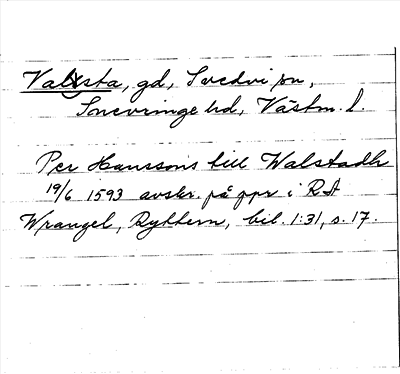 Valsta, gd, Svedvi sn,
Snevringe hd, Västm. l.
Per Hanssons till Walstadh
19/6 1593 avskr. på ppr i RA
Wrangel, Dykhern, bil. 1:31, s. 17.